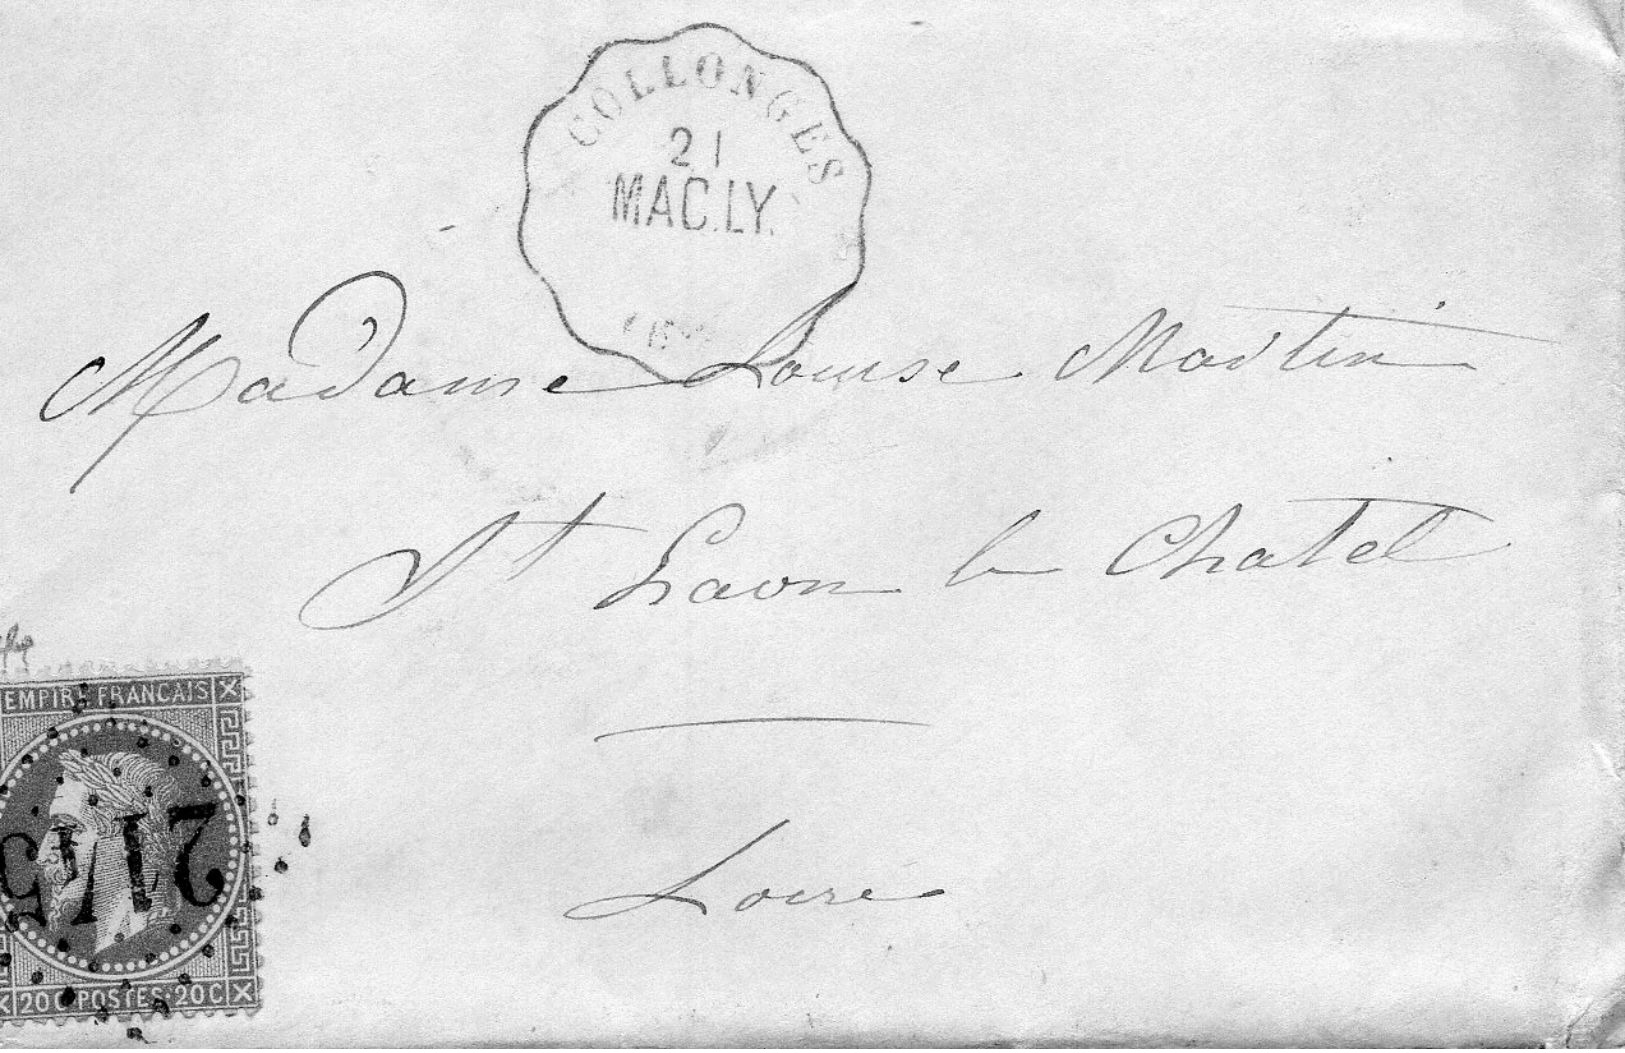 COLLONGES
21
MAC.LY.
Madame Louise Martin
St Haon le Chatel
Loire
EMPIRE FRANCAIS
20 C POSTES 20 C